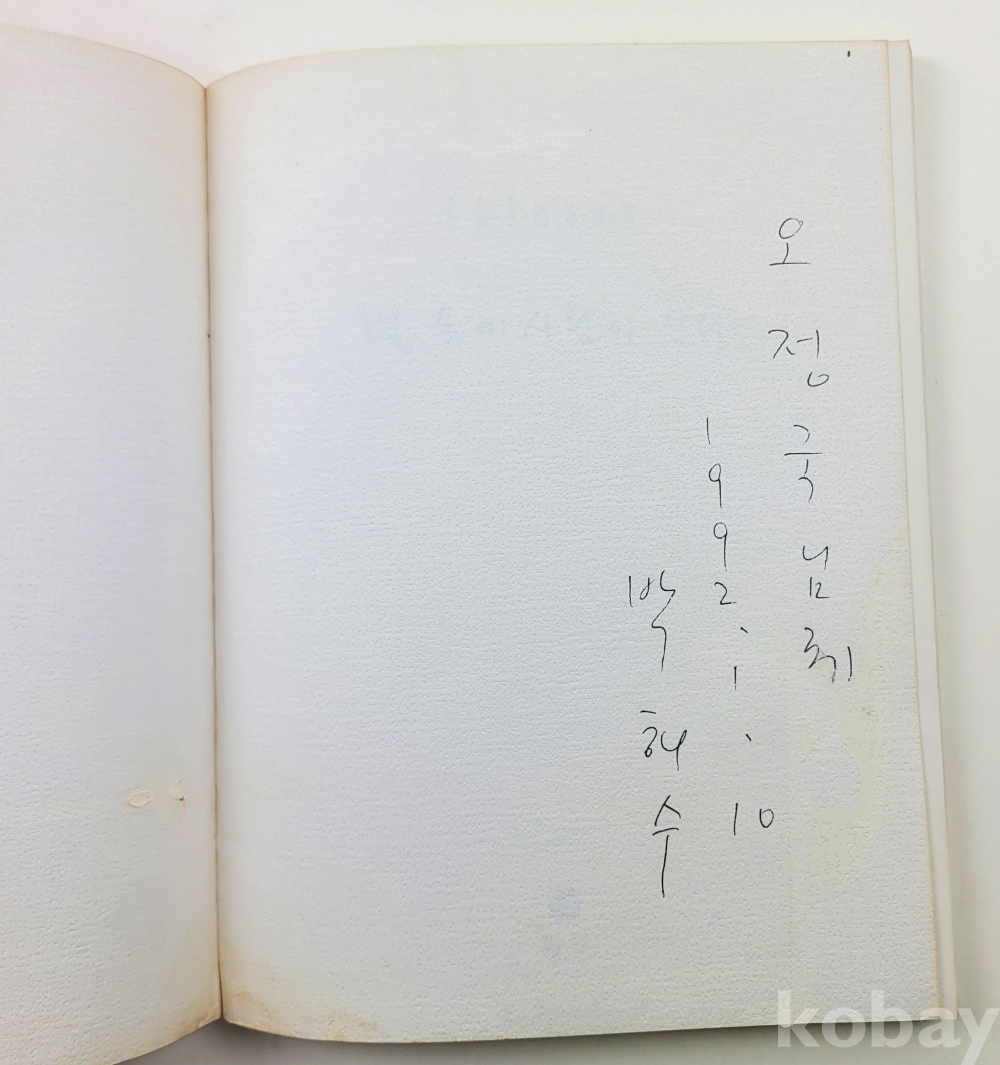 오정국님께
1992.1.10
박해수
kobay